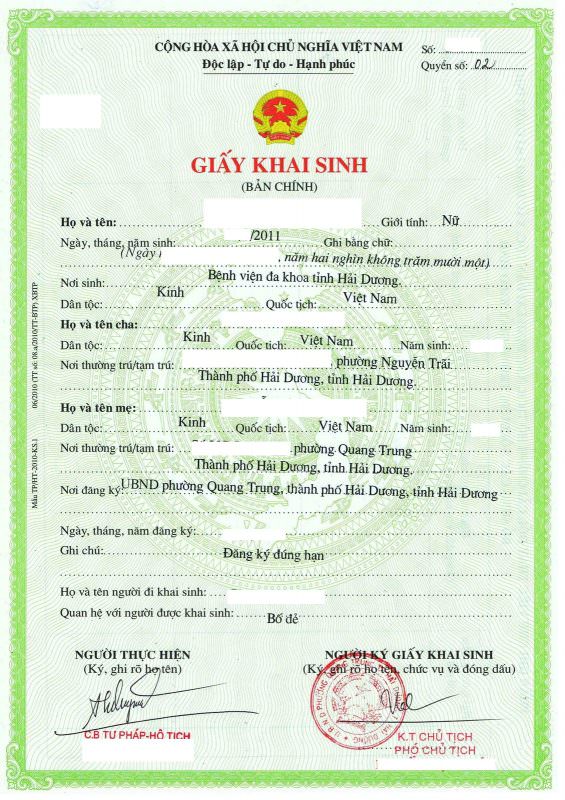 CỘNG HÒA XÃ HỘI CHỦ NGHĨA VIỆT NAM
Độc lập - Tự do - Hạnh phúc
Số:
Quyển số: 02
GIẤY KHAI SINH
(BẢN CHÍNH)
Họ và tên: Giới tính: Nữ
Ngày, tháng, năm sinh: /2011 Ghi bằng chữ:
(Ngày , năm hai nghìn không trăm mười một)
Nơi sinh: Bệnh viện đa khoa tỉnh Hải Dương.
Dân tộc: Kinh Quốc tịch: Việt Nam
Họ và tên cha:
Dân tộc: Kinh Quốc tịch: Việt Nam Năm sinh:
Nơi thường trú/tạm trú: phường Nguyễn Trãi
Thành phố Hải Dương, tỉnh Hải Dương.
Họ và tên mẹ:
Dân tộc: Kinh Quốc tịch: Việt Nam Năm sinh:
Nơi thường trú/tạm trú: phường Quang Trung
Thành phố Hải Dương, tỉnh Hải Dương.
Nơi đăng ký: UBND phường Quang Trung, thành phố Hải Dương, tỉnh Hải Dương
Ngày, tháng, năm đăng ký:
Ghi chú: Đăng ký đúng hạn
Họ và tên người đi khai sinh:
Quan hệ với người được khai sinh: Bố đẻ
NGƯỜI THỰC HIỆN
(Ký, ghi rõ họ tên)
C.B TƯ PHÁP-HỘ TỊCH
NGƯỜI KÝ GIẤY KHAI SINH
(Ký, ghi rõ họ tên, chức vụ và đóng dấu)
K.T CHỦ TỊCH
PHÓ CHỦ TỊCH
Mẫu TP/HT-2010-KS.1 06/2010 (TT số: 08.a/2010/TT-BTP) XBTP